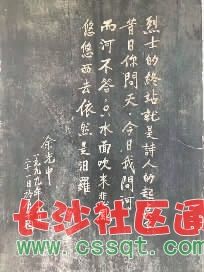 烈士的终站就是诗人的起点
昔日你问天,今日我问河
而河不答,只水面吹来悲风
悠悠西去依然是汨罗
余光中
长沙社区通
www.cssqt.com